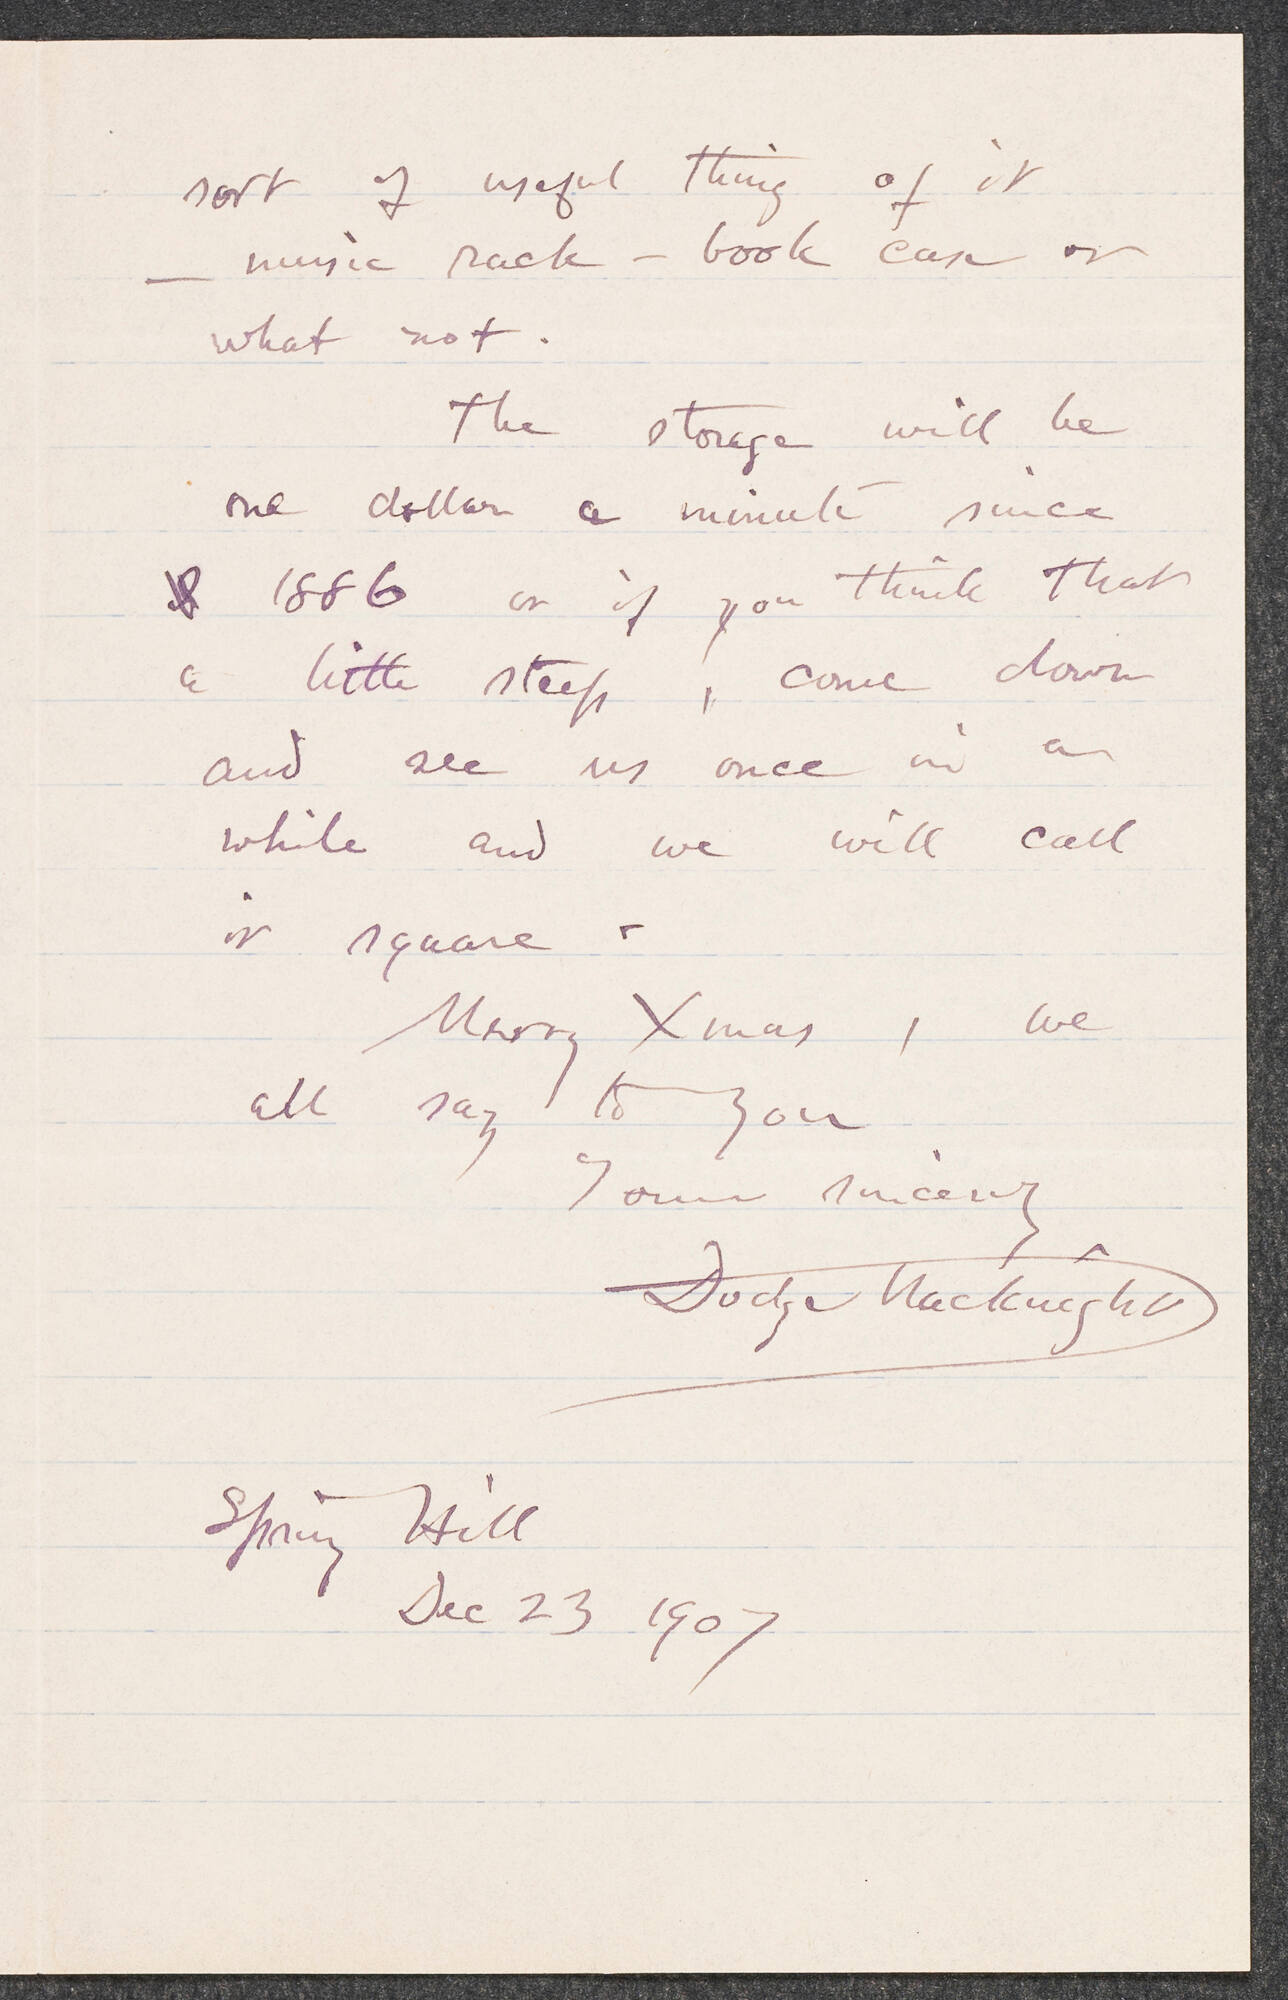 sort of useful thing of it
— music rack — book case or
what not.
The storage will be
one dollar a minute since
1886 or if you think that
a little steep, come down
and see us once in a
while and we will call
it square.
Merry Xmas, we
all say to you
Yours sincerely
Dodge Macknight
Spring Hill
Dec 23 1907